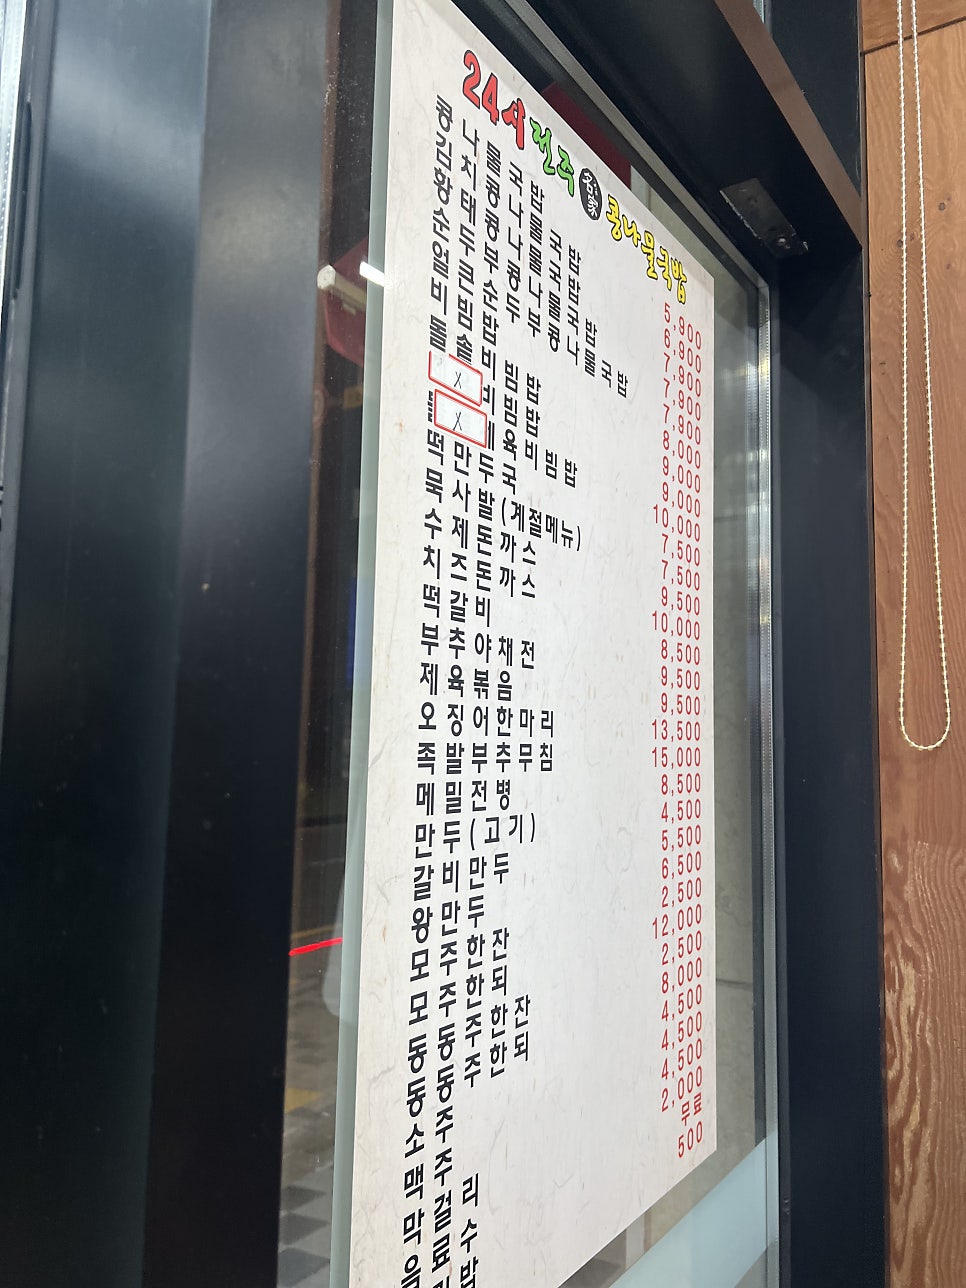 24시전주 名家 콩나물국밥
콩나물국밥 5,900
김치콩나물국밥 6,900
황태콩나물국밥 7,900
순두부콩나물국밥 7,900
얼큰순두부콩나물국밥 7,900
비빔밥 8,000
돌솥비빔밥 9,000
X 비빔밥 9,000
X 육비빔밥 10,000
떡만두국 7,500
묵사발(계절메뉴) 7,500
수제돈까스 9,500
치즈돈까스 10,000
떡갈비 8,500
부추야채전 9,500
제육볶음 9,500
오징어한마리 13,500
족발부추무침 15,000
메밀전병 8,500
만두(고기) 4,500
갈비만두 5,500
왕만두 6,500
모주한잔 2,500
모주한되 12,000
동동주한잔 2,500
동동주한되 8,000
소주 4,500
맥주 4,500
막걸리 4,500
음료수 2,000
무료
500